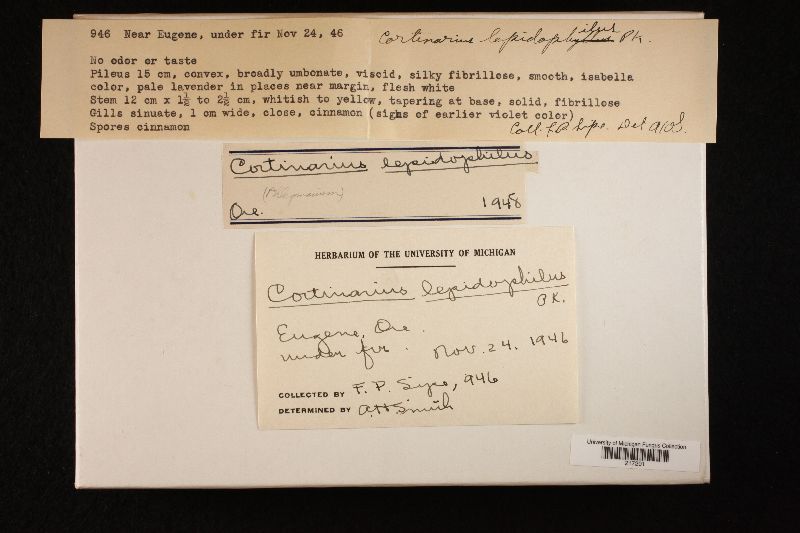 946 Near Eugene, under fir Nov 24, 46
Cortinarius lepidophyllus ilus Pk.
No odor or taste
Pileus 15 cm, convex, broadly umbonate, viscid, silky fibrillose, smooth, isabella
color, pale lavender in places near margin, flesh white
Stem 12 cm x 1½ to 2½ cm, whitish to yellow, tapering at base, solid, fibrillose
Gills sinuate, 1 cm wide, close, cinnamon (signs of earlier violet color)
Spores cinnamon
Coll. F.P. Sipe. Det AHS.
Cortinarius lepidophilus
Ore. 1948
HERBARIUM OF THE UNIVERSITY OF MICHIGAN
Cortinarius lepidophilus
PK.
Eugene, Ore.
under fir. Nov. 24. 1946
COLLECTED BY F. P. Sipe, 946
DETERMINED BY A.H. Smith
University of Michigan Fungus Collection